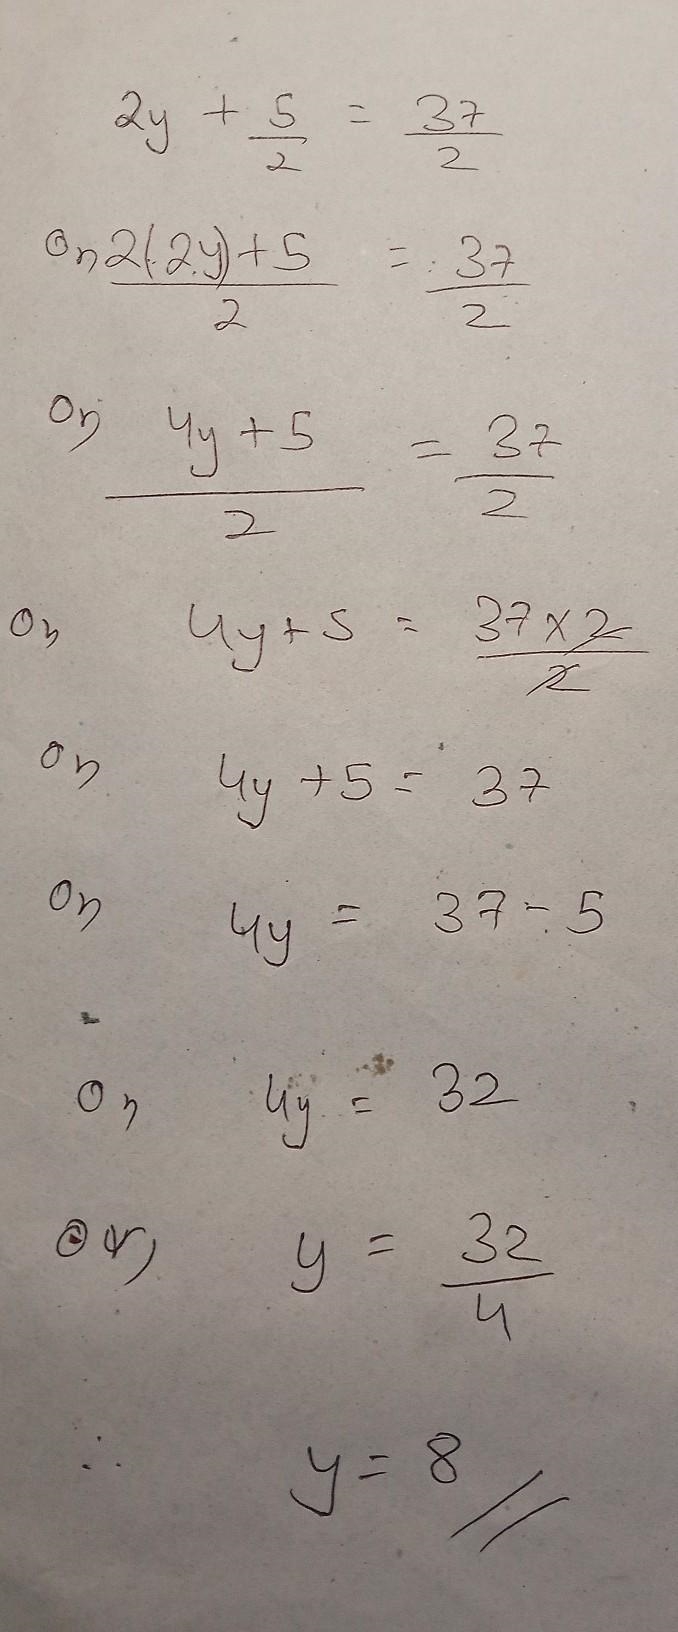 2y + 5/2 = 37/2
Or, 2(2y)+5/2 = 37/2
Or, 4y+5/2 = 37/2
Or, 4y+5 = 37×2/2
Or, 4y+5 = 37
Or, 4y = 37-5
Or, 4y = 32
Or, y = 32/4
∴ y = 8 //